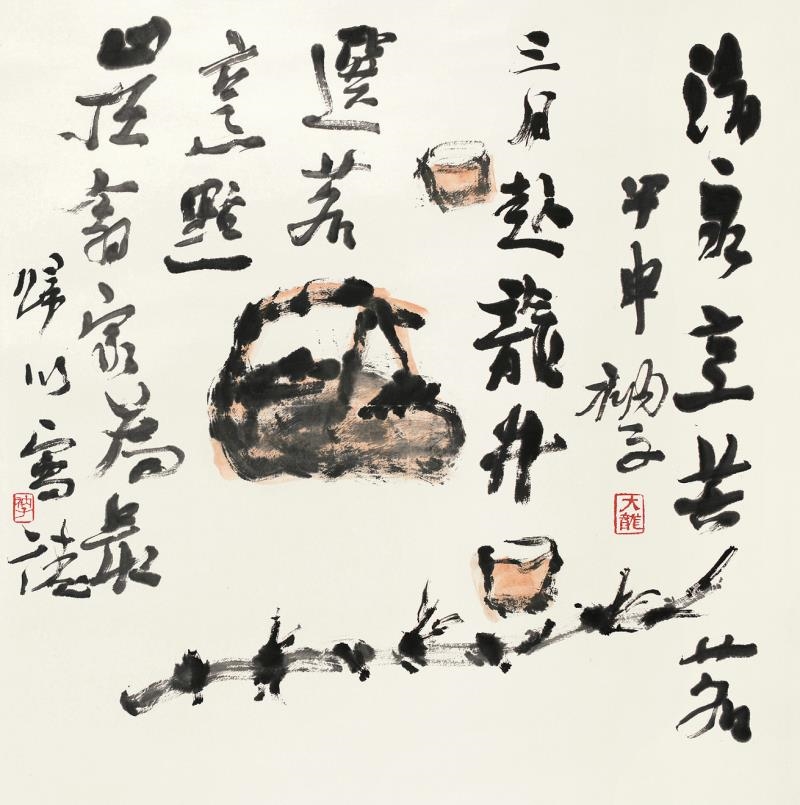 清泉烹苦茗
甲申 衲子
大龍
三月赴龍井
選茗
烹點
山莊翁家為最
歸以寫誌